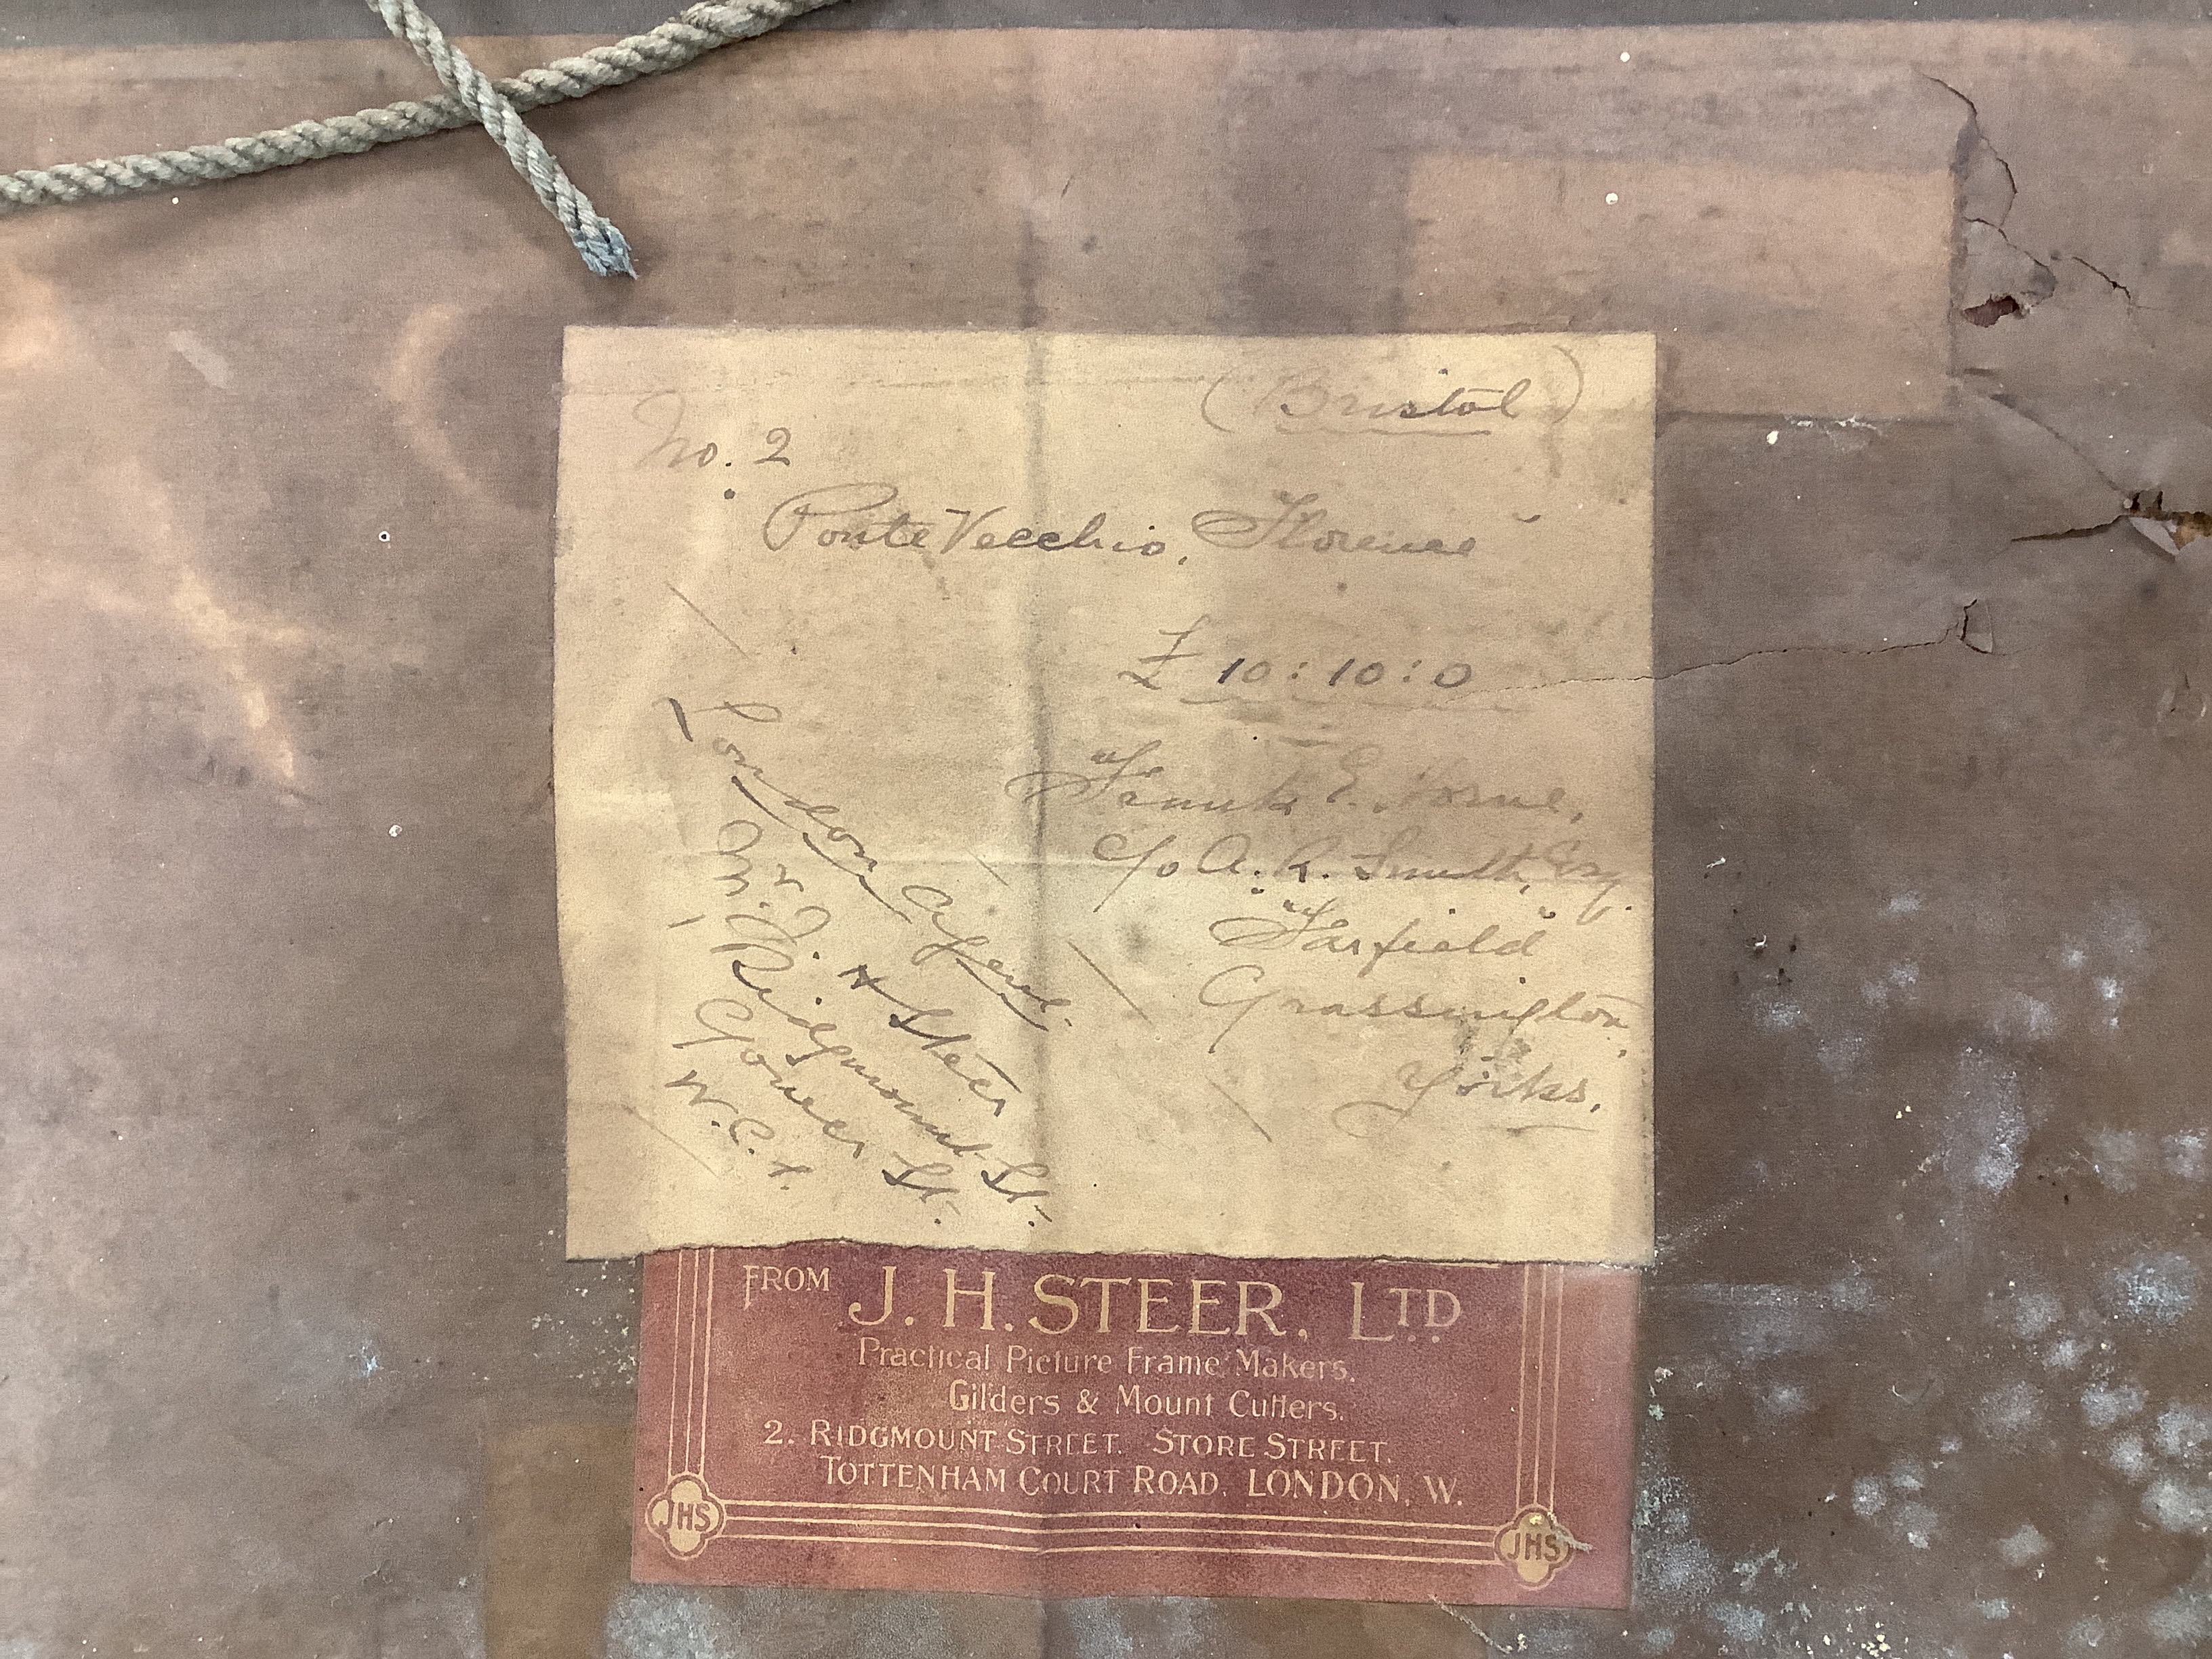 (Bristol)
No. 2
Ponte Vecchio, Florence
£ 10:10:0
Frank E. Horne,
c/o A. R. Smith, Esq.
Farfield
Grassington,
Yorks.
London Agent.
Mr. J. H Steer
2. Ridgmount St.
Gower St.
W.C.1.
FROM J. H. STEER, LTD
Practical Picture Frame Makers.
Gilders & Mount Cutters.
2. RIDGMOUNT STREET. STORE STREET.
TOTTENHAM COURT ROAD, LONDON, W.
JHS
JHS